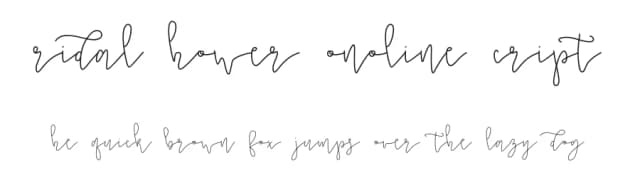 ridal hower onoline cript
he quick brown fox jumps over the lazy dog